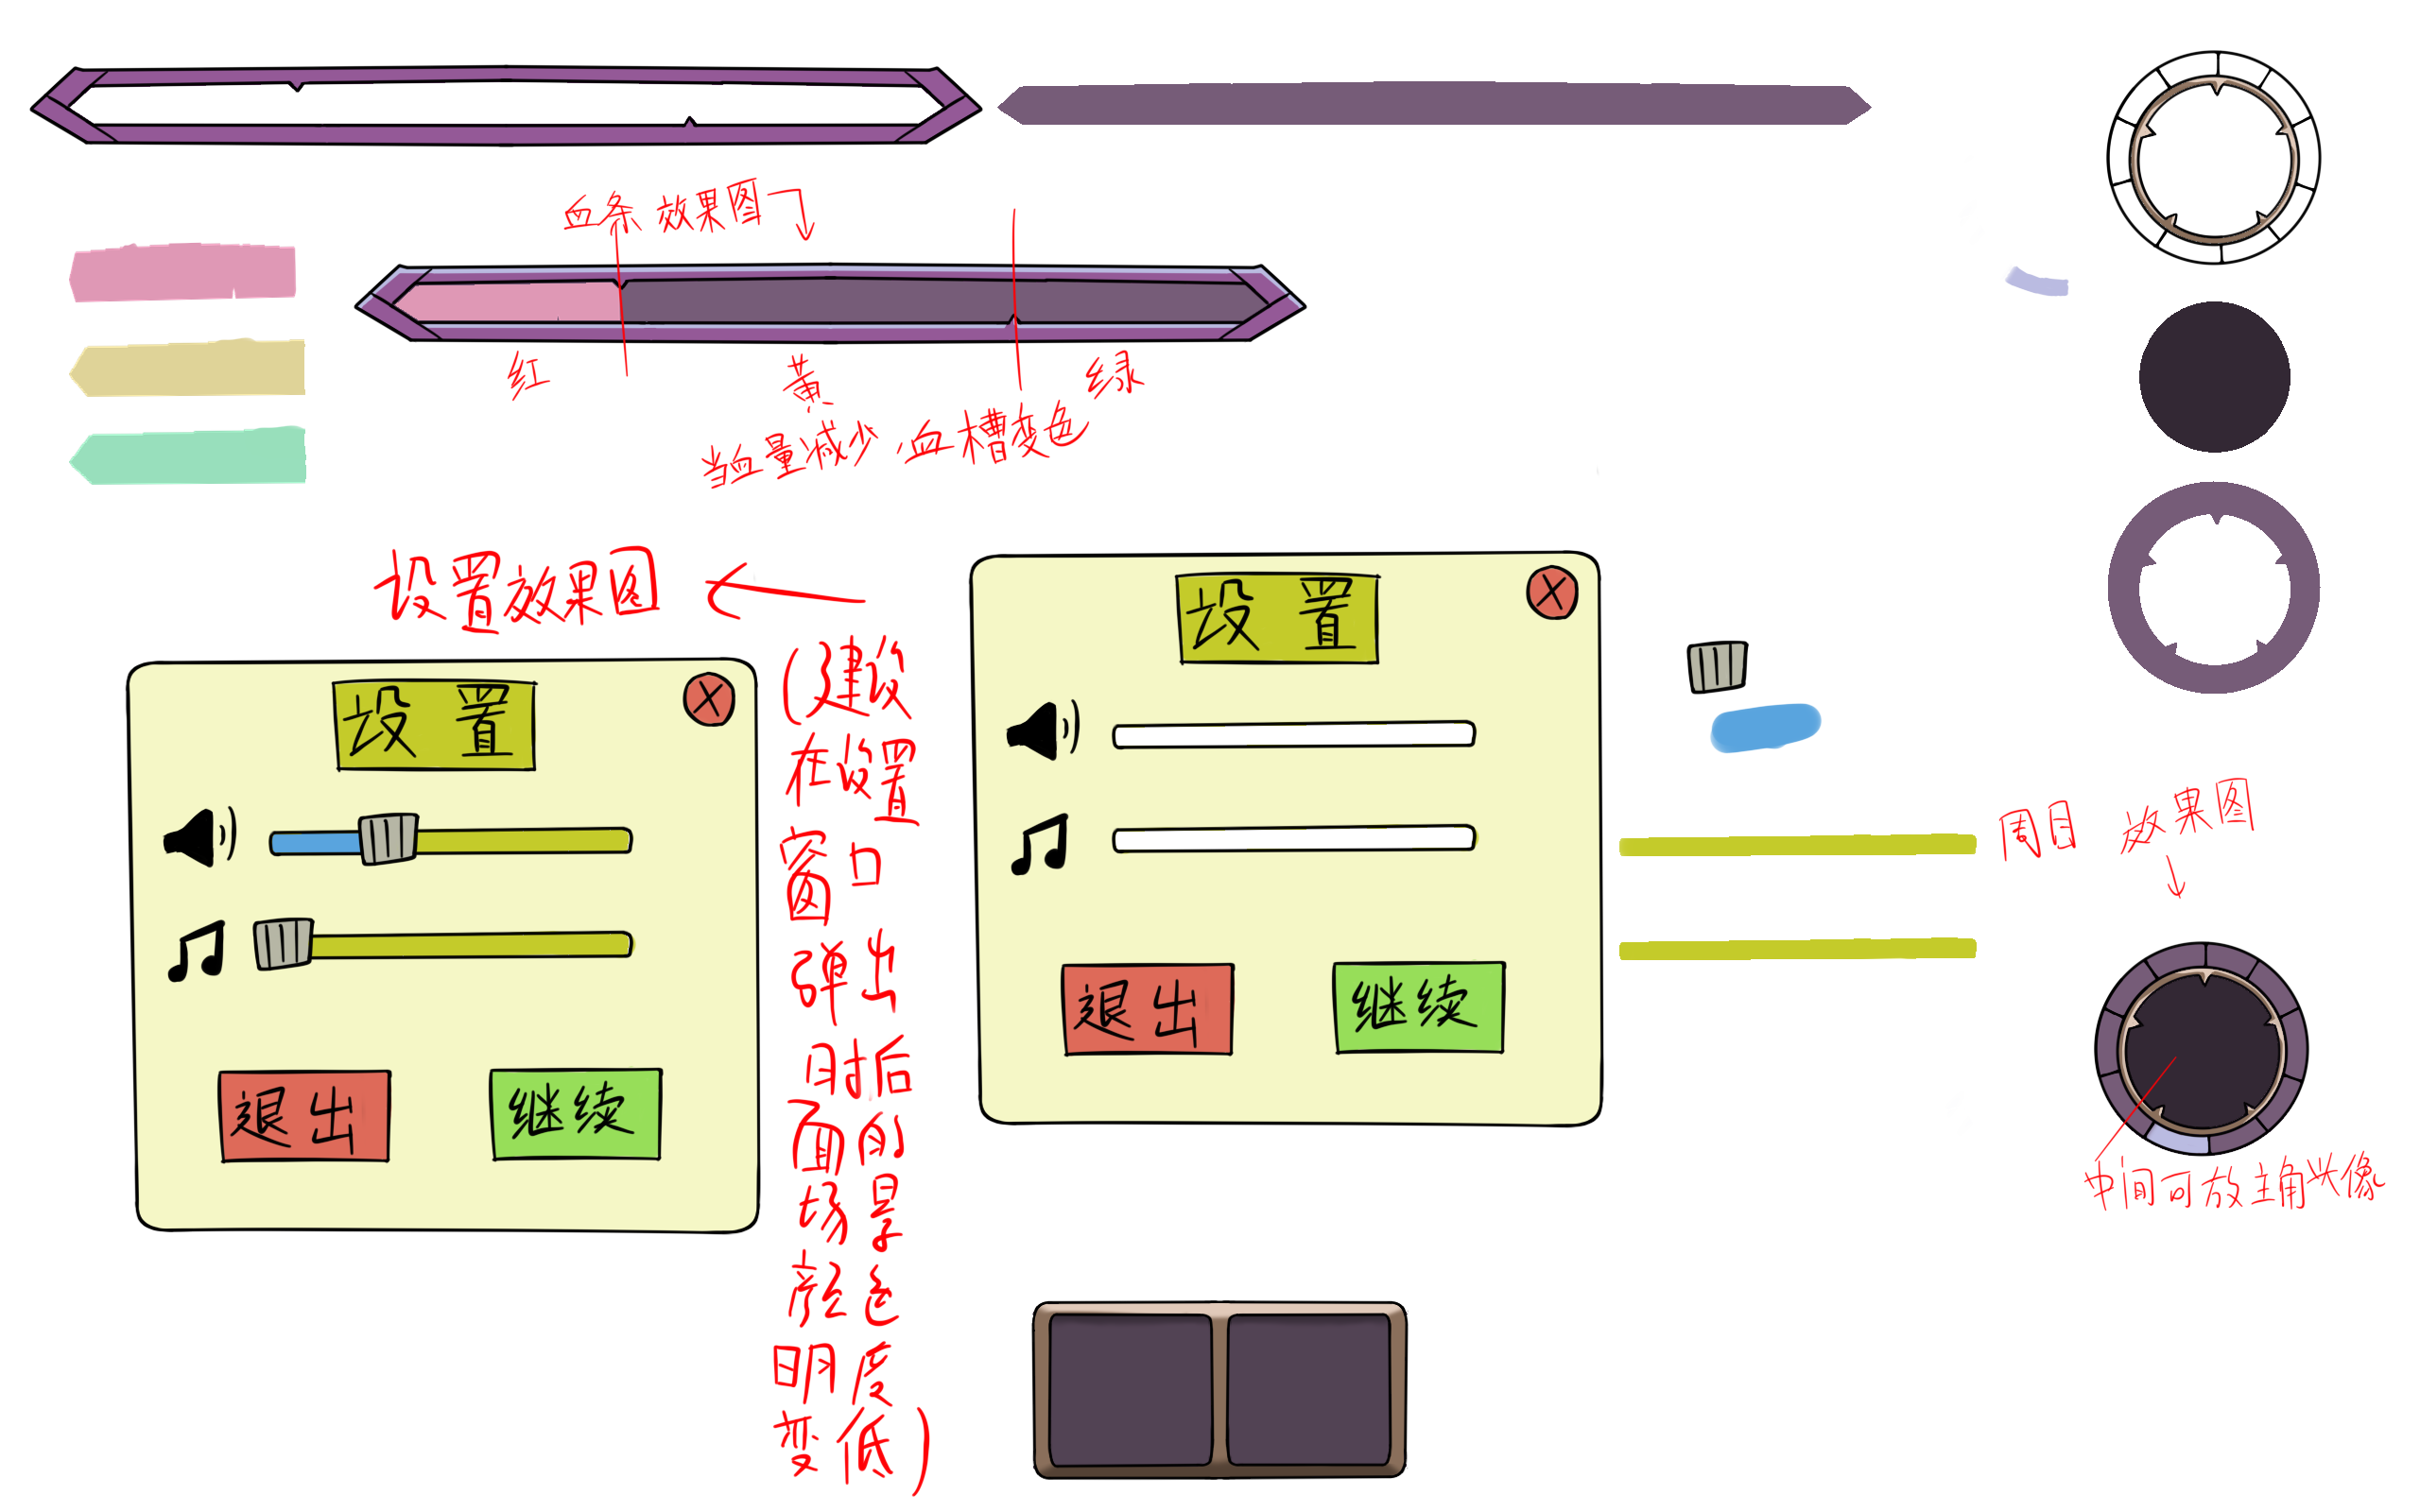 血条 效果图
红
黄
绿
当血量减少 血槽变色
设置效果图
(建议
在设置
窗口
弹出
时后
面的
场景
颜色
明度
变低)
设 置
退出
继续
设 置
退出
继续
周目 效果图
中间可放主角头像